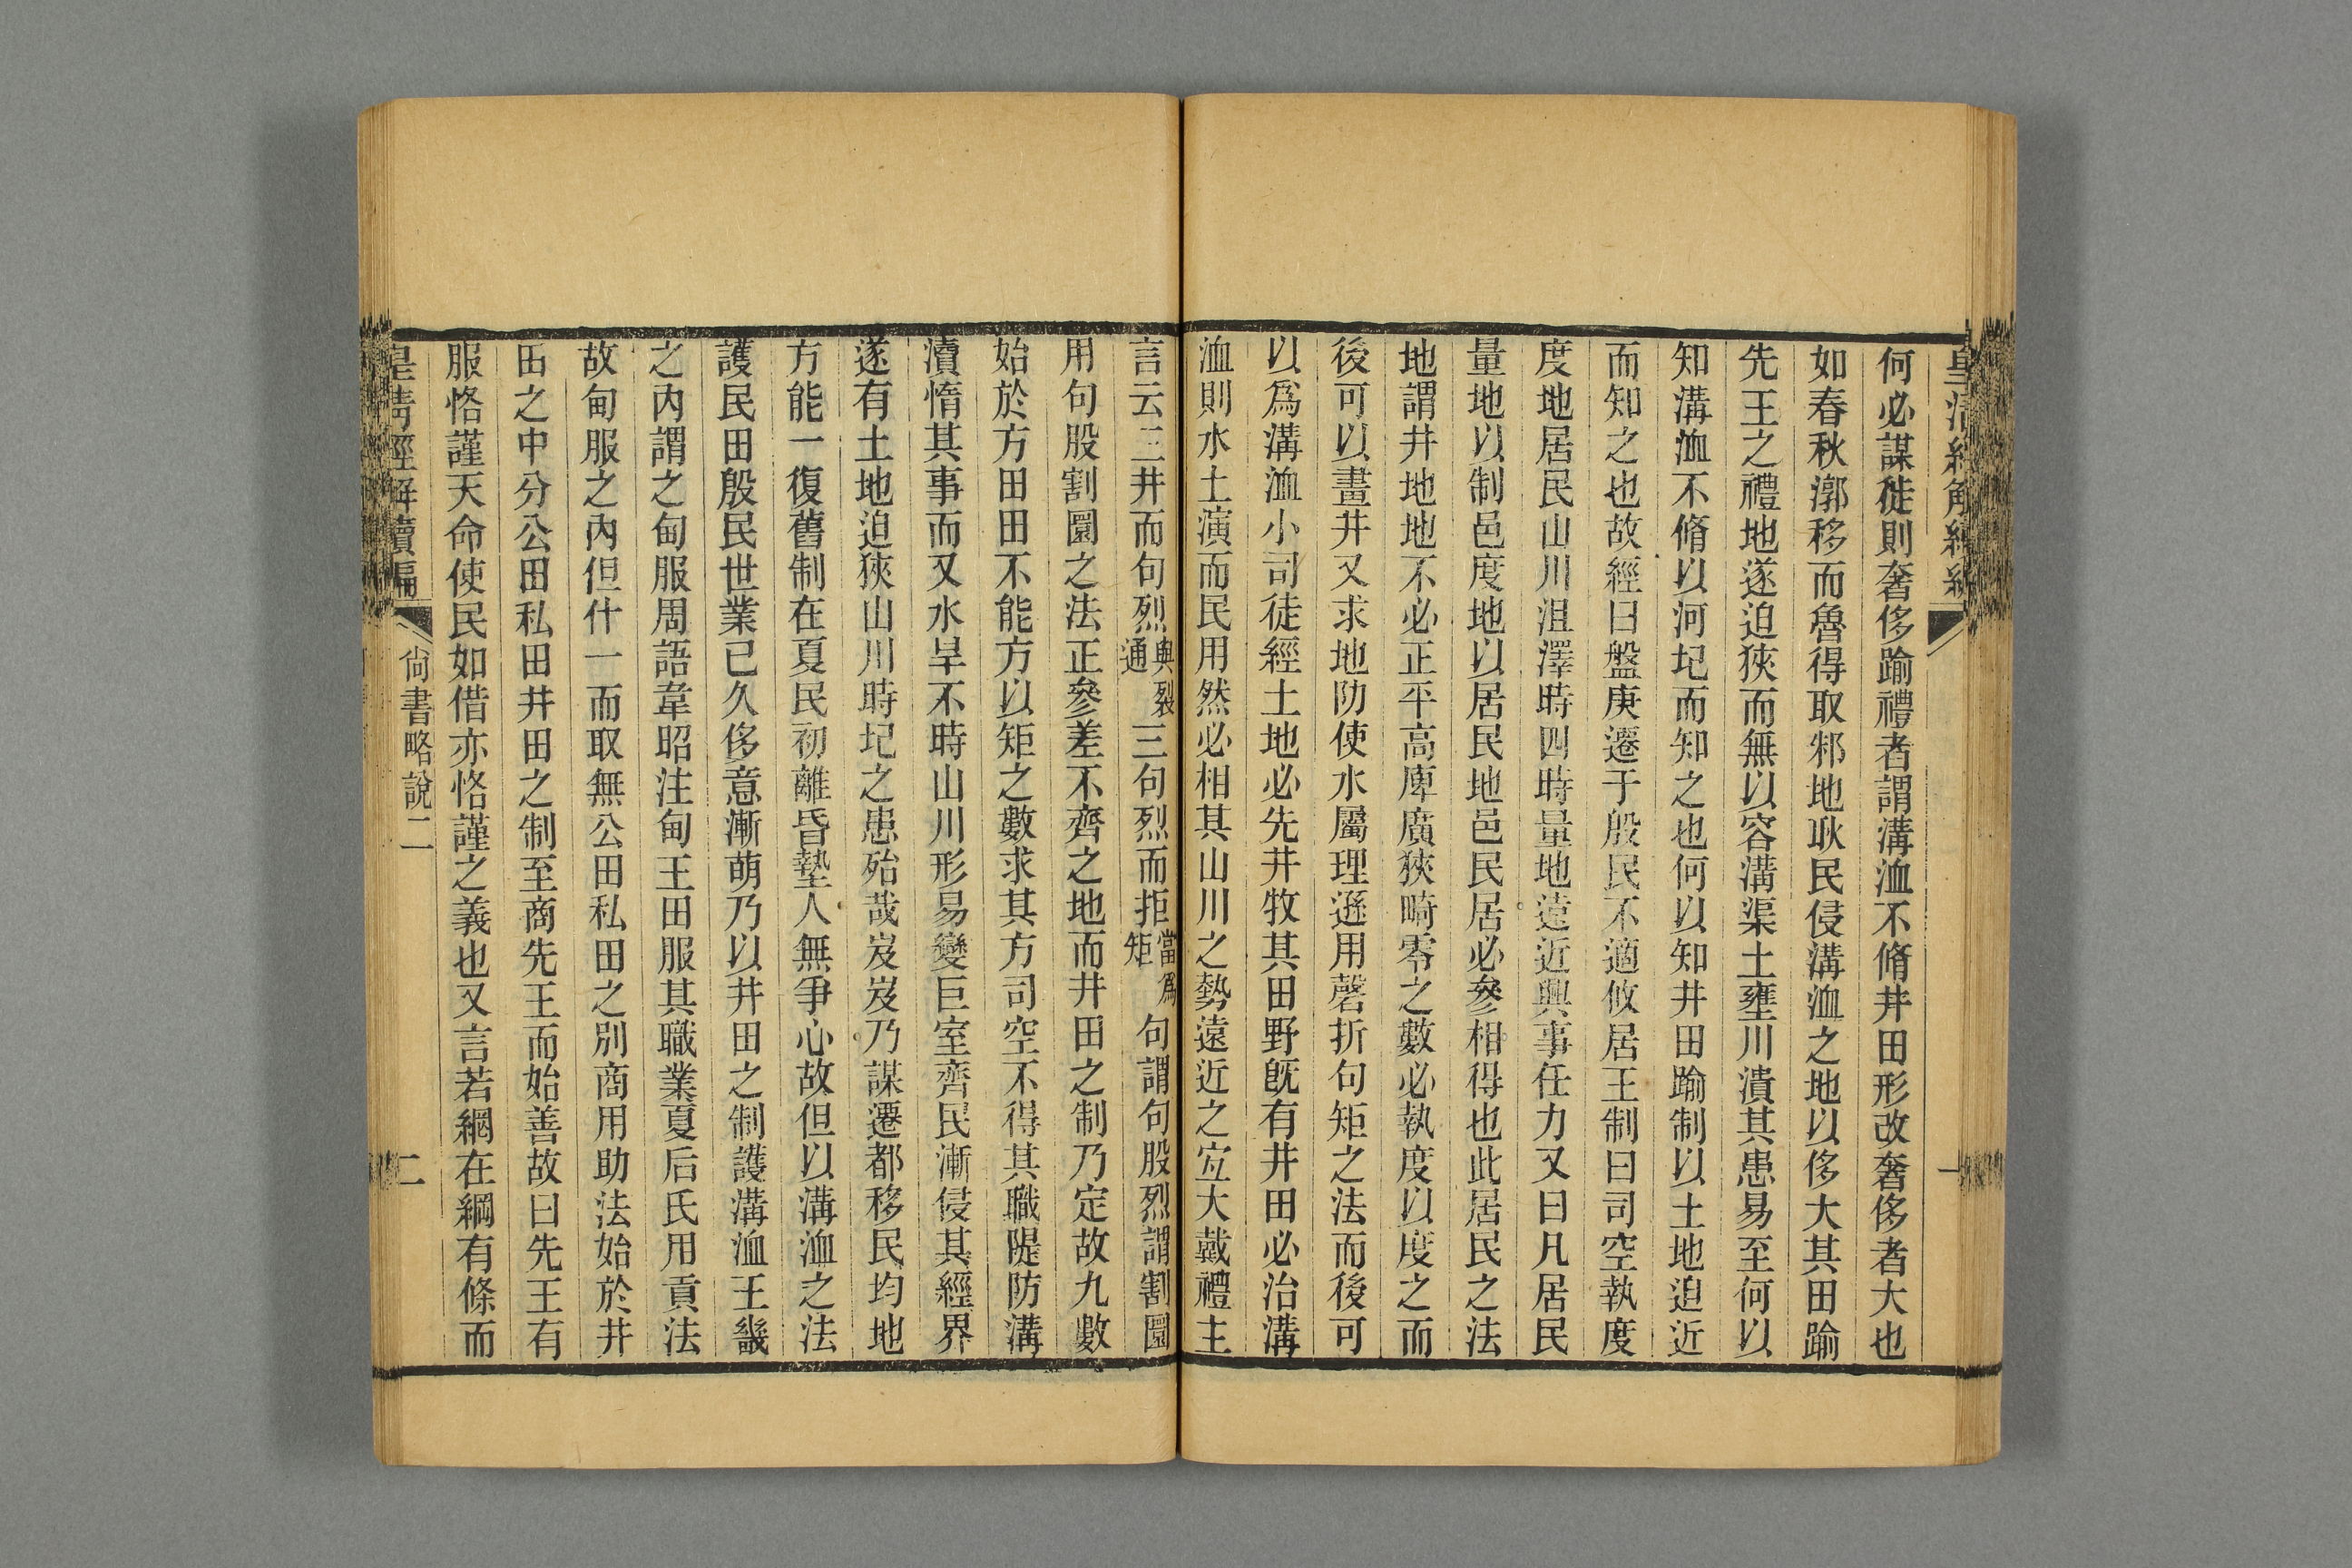 何必謀徙則奢侈踰禮者謂溝洫不脩井田形改奢侈者大也
如春秋漷移而魯得取邾地耿民侵溝洫之地以侈大其田踰
先王之禮地遂迫狹而無以容溝渠土壅川潰其患易至何以
知溝洫不脩以河圮而知之也何以知井田踰制以土地迫近
而知之也故經曰盤庚遷于殷民不適攸居王制曰司空執度
度地居民山川沮澤時四時量地遠近興事任力又曰凡居民
量地以制邑度地以居民地邑民居必參相得也此居民之法
地謂井地地不必正平高庳廣狹畸零之數必執度以度之而
後可以畫井又求地阞使水屬理遜用磬折句矩之法而後可
以爲溝洫小司徒經土地必先井牧其田野旣有井田必治溝
洫則水土演而民用然必相其山川之勢遠近之宐大戴禮主
言云三井而句烈與裂通三句烈而拒當爲矩句謂句股烈謂割圜
用句股割圜之法正參差不齊之地而井田之制乃定故九數
始於方田田不能方以矩之數求其方司空不得其職隄防溝
瀆惰其事而又水旱不時山川形易變巨室齊民漸侵其經界
遂有土地迫狹山川時圮之患殆哉岌岌乃謀遷都移民均地
方能一復舊制在夏民初離昏墊人無爭心故但以溝洫之法
護民田殷民世業已久侈意漸萌乃以井田之制護溝洫王畿
之內謂之甸服周語韋昭注甸王田服其職業夏后氏用貢法
故甸服之內但什一而取無公田私田之別商用助法始於井
田之中分公田私田井田之制至商先王而始善故曰先王有
服恪謹天命使民如借亦恪謹之義也又言若網在綱有條而
皇清經解續編
尙書略說二
二